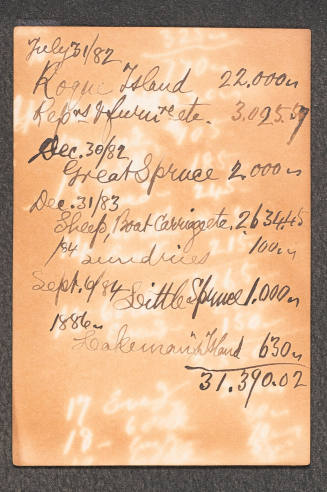 July 31/82
Roque Island 22.000 "
Reprs & furnire etc. 3.025.57
Dec. 30/82
Great Spruce 2.000 "
Dec. 31/83
Sheep, Boat Carrigge etc. 2634.45
/84 sundries 100 "
Sept. 6/84 Little Spruce 1.000 "
1886 "
Lakeman's Island 630 "
31.390.02
17
18 -